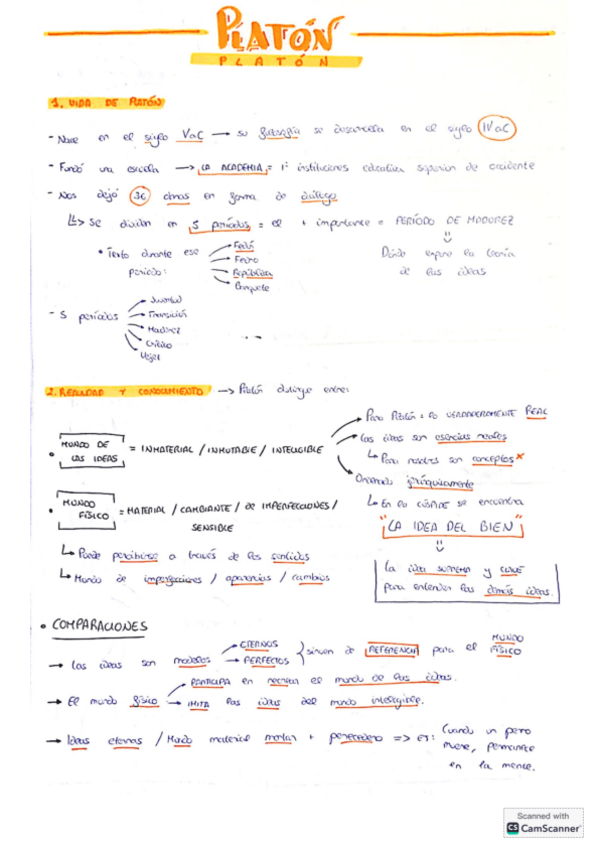 PLATÓN
PLATÓN
1. VIDA DE PLATÓN
- Nace en el siglo V a C → su filosofía se desarrolla en el siglo IV a C
- Fundó una escuela → LA ACADEMIA = 1ª institución educativa superior de occidente
- Nos dejó 36 obras en forma de diálogo
↳ Se dividen en 5 períodos = el + importante = PERÍODO DE MADUREZ
Dónde expone la teoría de las ideas
• Texto durante ese período:
→ Fedón
→ Fedro
→ República
→ Banquete
- 5 períodos
→ Juventud
→ Transición
→ Madurez
→ Crítico
→ Vejez
2. REALIDAD Y CONOCIMIENTO → Platón distingue entre:
• MUNDO DE LAS IDEAS = INMATERIAL / INMUTABLE / INTELIGIBLE
→ Para Platón = lo VERDADERAMENTE REAL
→ Las ideas son esencias reales
↳ Para nosotros son conceptos x
→ Ordenado jerárquicamente
↳ En la CÚSPIDE se encuentra
"LA IDEA DEL BIEN"
La idea suprema y clave
para entender las demás ideas.
• MUNDO FÍSICO = MATERIAL / CAMBIANTE / DE IMPERFECCIONES /
SENSIBLE
↳ Puede percibirse a través de los sentidos
↳ Mundo de imperfecciones / apariencias / cambios
• COMPARACIONES
→ Las ideas son modelos
→ ETERNOS
→ PERFECTOS
} sirven de REFERENCIA para el MUNDO FÍSICO
→ El mundo físico
→ PARTICIPA en recrear el mundo de las ideas.
→ IMITA las ideas del mundo inteligible.
→ Ideas eternas / Mundo material mortal + perecedero => EJ: Cuando un perro
muere, permanece
en la mente.
Scanned with
CS CamScanner